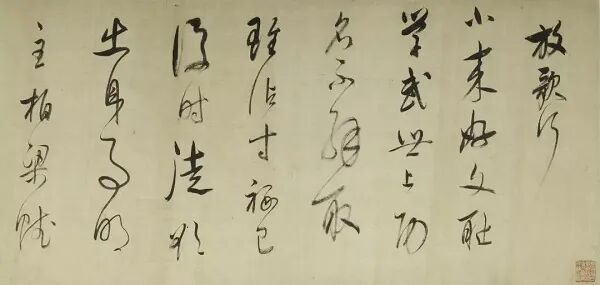 放歌行
小來好文耻
學武世上功
名不解取
雖沾寸祿已
後時徒欲
出身事明
主柏梁賦